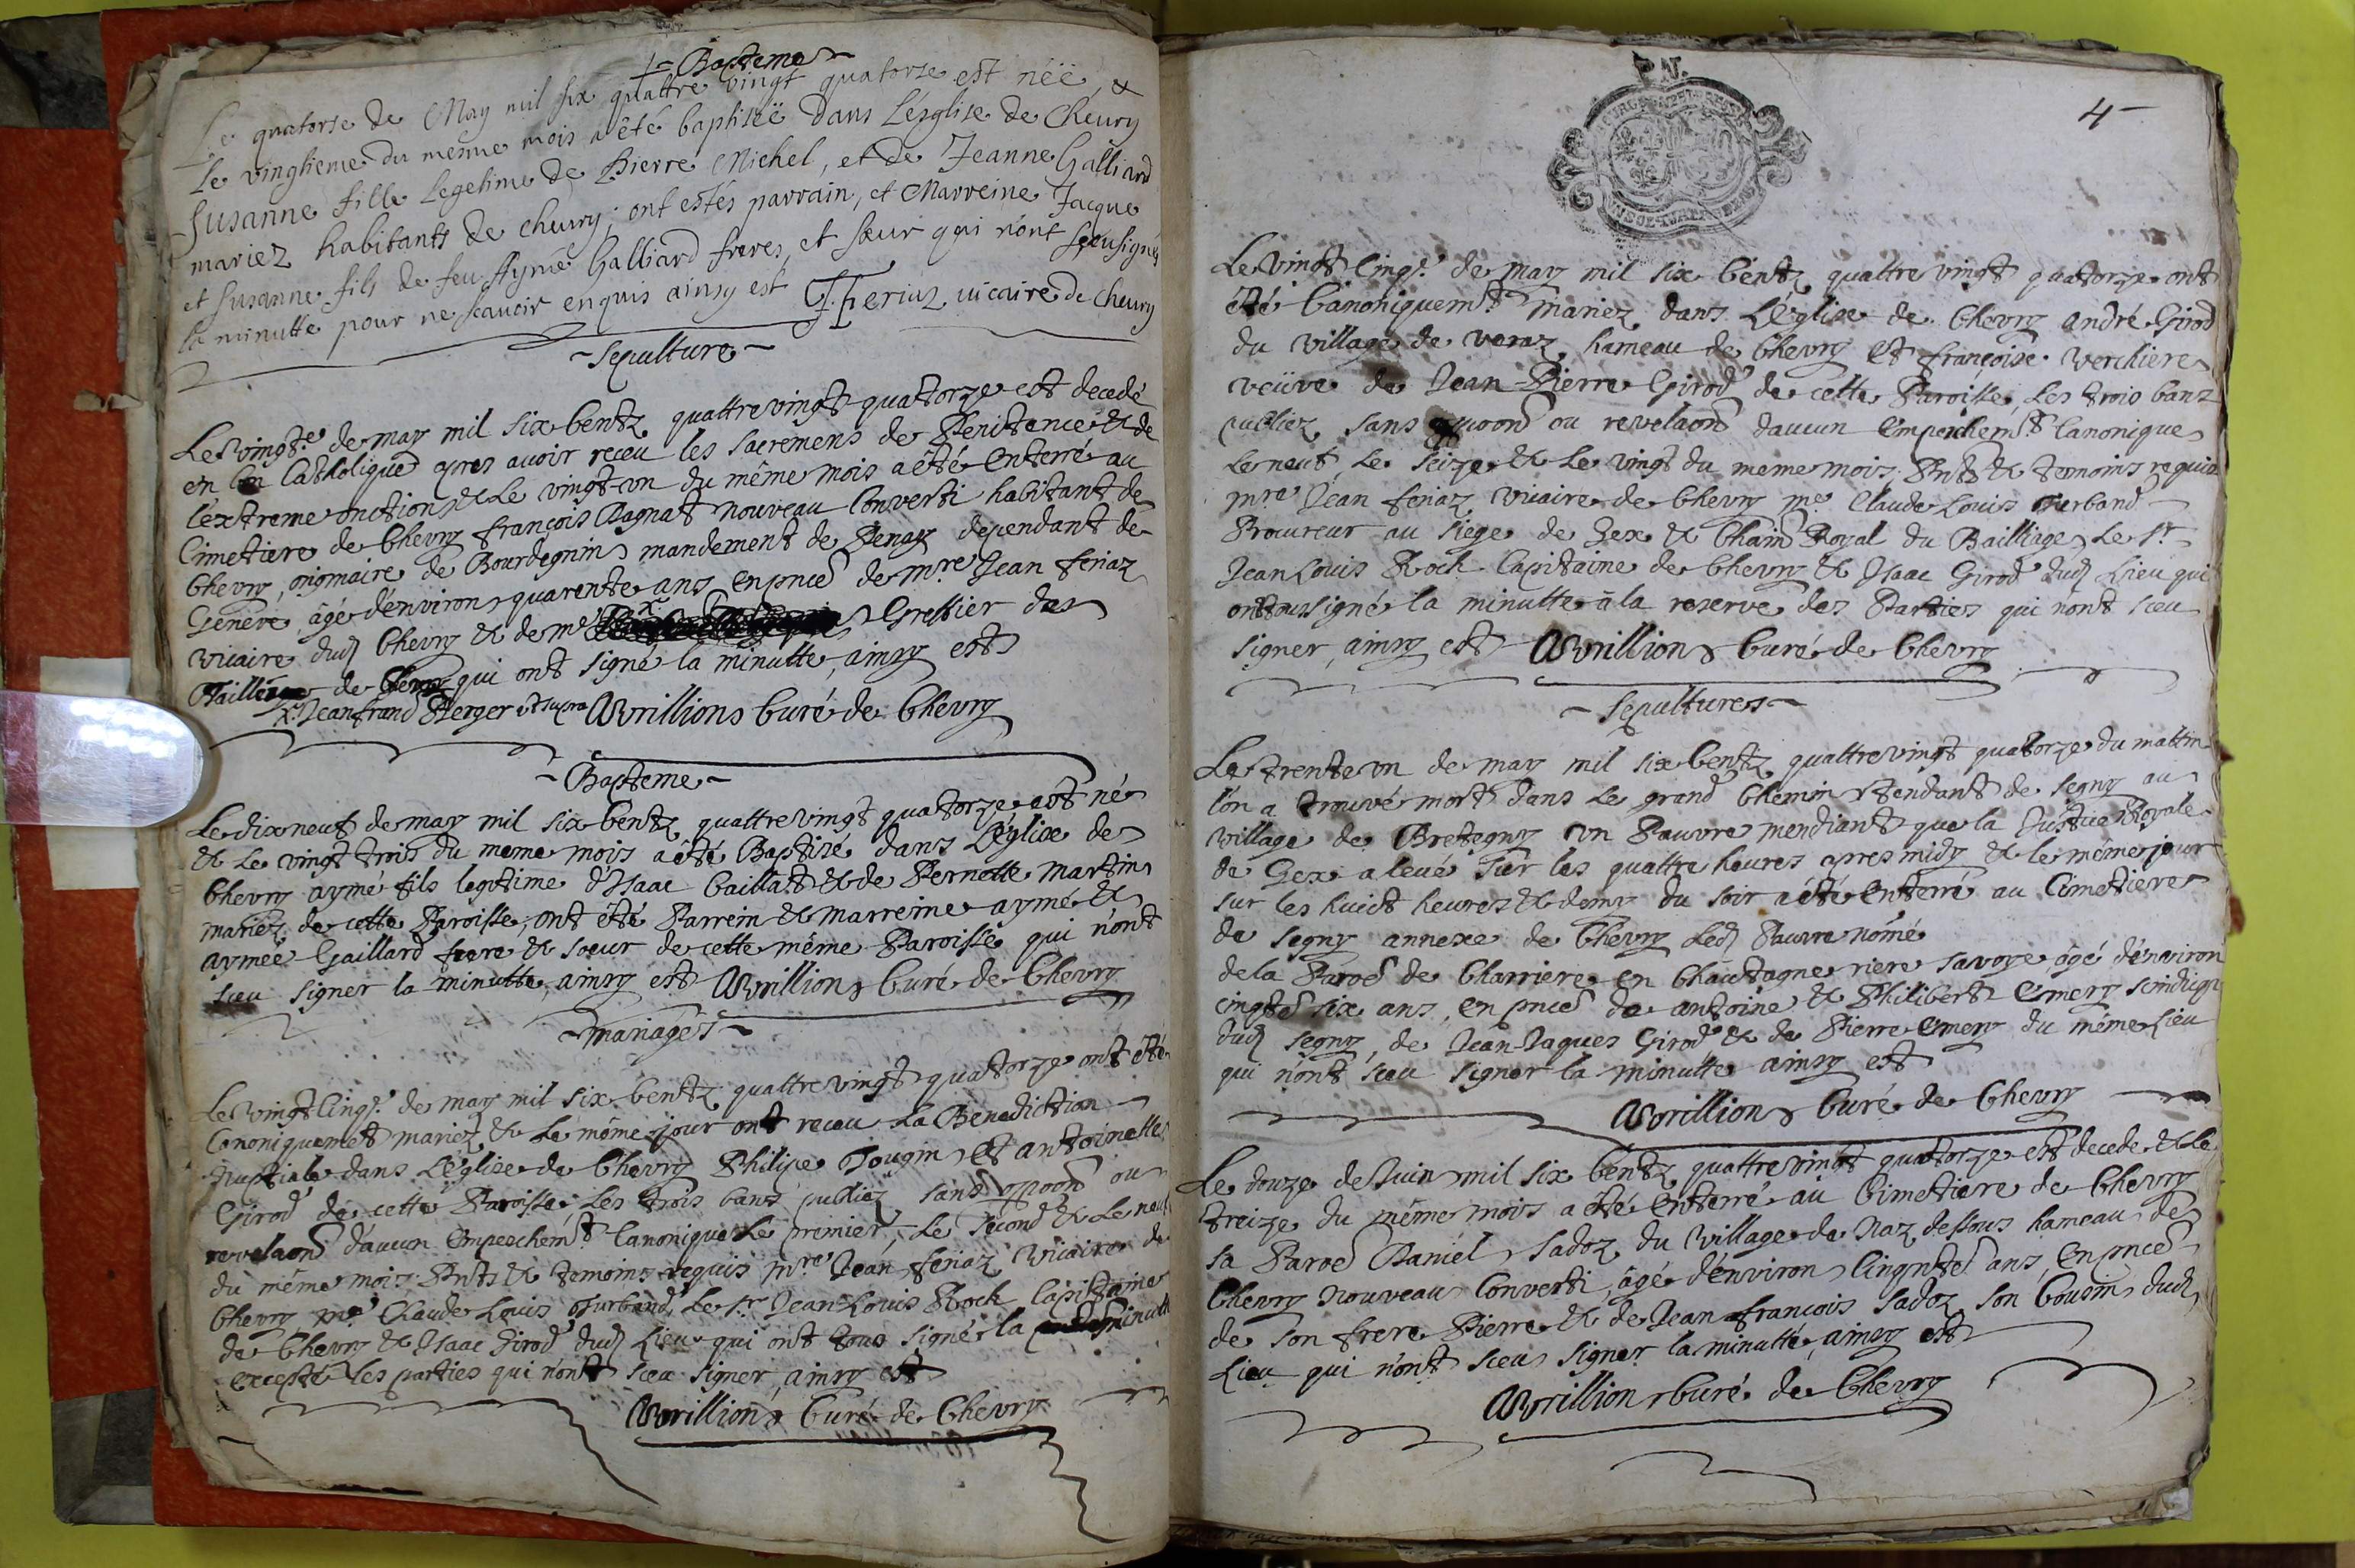 Bapteme
Le quatorse de May mil six quattre vingt quatorse est néë, &
le vingtieme du mesme mois a êté baptiséë dans L'ésglise de Cheury
Susanne fille Legetime de Pierre Michel, et de Jeanne Galliard
mariez habitants de cheury; ont estés parrain, et Marreine Jacque
et Susanne fils de feu Aymé Galliard freres, et sœur qui n'ont sçeu signés
la minutte pour ne scavoir enquis ainsy est J. feriaz vicaire de cheury
Sepulture
Le vingt.e de may mil six Centz quattre vingt quatorze est decedé
en bon Catholique apres avoir receu les sacremens de Penitence & de
l'extreme onction, & le vingt un du même mois a été Enterré au
Cimetiere de Chevry françois Pagnat nouveau Converti habitant de
Chevry, originaire de Bourdegnin mandement de Penay dependant de
Genéve âgé d'environ quarente ans, en pnce de mre Jean feriaz
vicaire dud Chevry & de me Greffier des
de qui ont signé la minutte, ainsy est
x Jean frand Berger Avrillion Curé de Chevry
Bapteme
Le dix neuf de may mil six Centz quattre vingt quatorze est né
& le vingt trois du meme mois a été Baptisé dans L'église de
Chevry aymé fils legitime d'Isaac Caillat & de Pernette martin
mariez de cette Paroisse, ont été Parrein & marreine aymé &
aymée Gaillard frere & sœur de cette même Paroisse qui n'ont
sceu signer la minutte, ainsy est Avrillion Curé de Chevry
mariages
Le vingt Cinq.e de may mil six Centz quattre vingt quatorze ont été
Canoniquemet mariez & le même jour ont receu la Benediction
Nuptiale dans L'église de Chevry Philipe Jougin et antoinette
Girod de cette Paroisse les trois bans publiez sans oppoon ou
revelaon d'aucun Empeschemt Canonique le premier, le second & le neuf
du même mois Pnts & temoins requis mre Jean feriaz vicaire de
Chevry, me Claude Louis Turband, le sr Jean Louis Rock Capitaine
de Chevry & Isaac Girod dud Lieu qui ont tous signé la minutte
excepté les parties qui n'ont sceu signer, ainsy est
Avrillion Curé de Chevry
4
Le vingt Cinq.e de may mil six Centz quattre vingt quatorze ont
été Canoniquemt mariez dans L'église de Chevry andré Girod
du village de veraz hameau de Chevry et françoise verchiere
veüve de Jean-Pierre Girod de cette Paroisse, les trois bans
publiez sans oppoon ou revelaon d'aucun Empeschemt Canonique
le neuf le seize & le vingt du meme mois, Pnts & temoins requis
mre Jean feriaz vicaire de Chevry me Claude Louis Turband
Procureur au siege de Gex & Bailliage, le sr
Jean Louis Rock Capitaine de Chevry & Isaac Girod dud Lieu qui
ont tous signé la minutte à la reserve des Parties qui n'ont sceu
signer, ainsy est Avrillion Curé de Chevry
Sepultures
Le trente un de may mil six Centz quattre vingt quatorze du mattin
l'on a trouvé mort dans le grand Chemin tendant de Segny au
village de Bretegny un Pauvre mendiant que la Justice Royale
de Gex a levé sur les quattre heures apres midy & le même jour
sur les huict heures & demy du soir a été Enterré au Cimetiere
de Segny annexe de Chevry led Pauvre nômé
de la Paroe de Charriere en Chautagne riere Savoye âgé d'environ
cinqte six ans, en pnce de antoine & Philibert Emery scindiqs
dud Segny, de Jean-Jaques Girod & de Pierre Emery du même Lieu
qui n'ont sceu signer la minutte ainsy est
Avrillion Curé de Chevry
Le douze de Juin mil six Centz quattre vingt quatorze est decede & le
treize du même mois a été Enterré au Cimetiere de Chevry
sa Paroe Daniel Sadoz du village de Naz dessous hameau de
Chevry nouveau Converti, âgé d'environ Cinqnte ans, en pnce
de son frere Pierre & de Jean françois Sadoz son Cousin dud
Lieu qui n'ont sceu signer la minutte, ainsy est
Avrillion Curé de Chevry